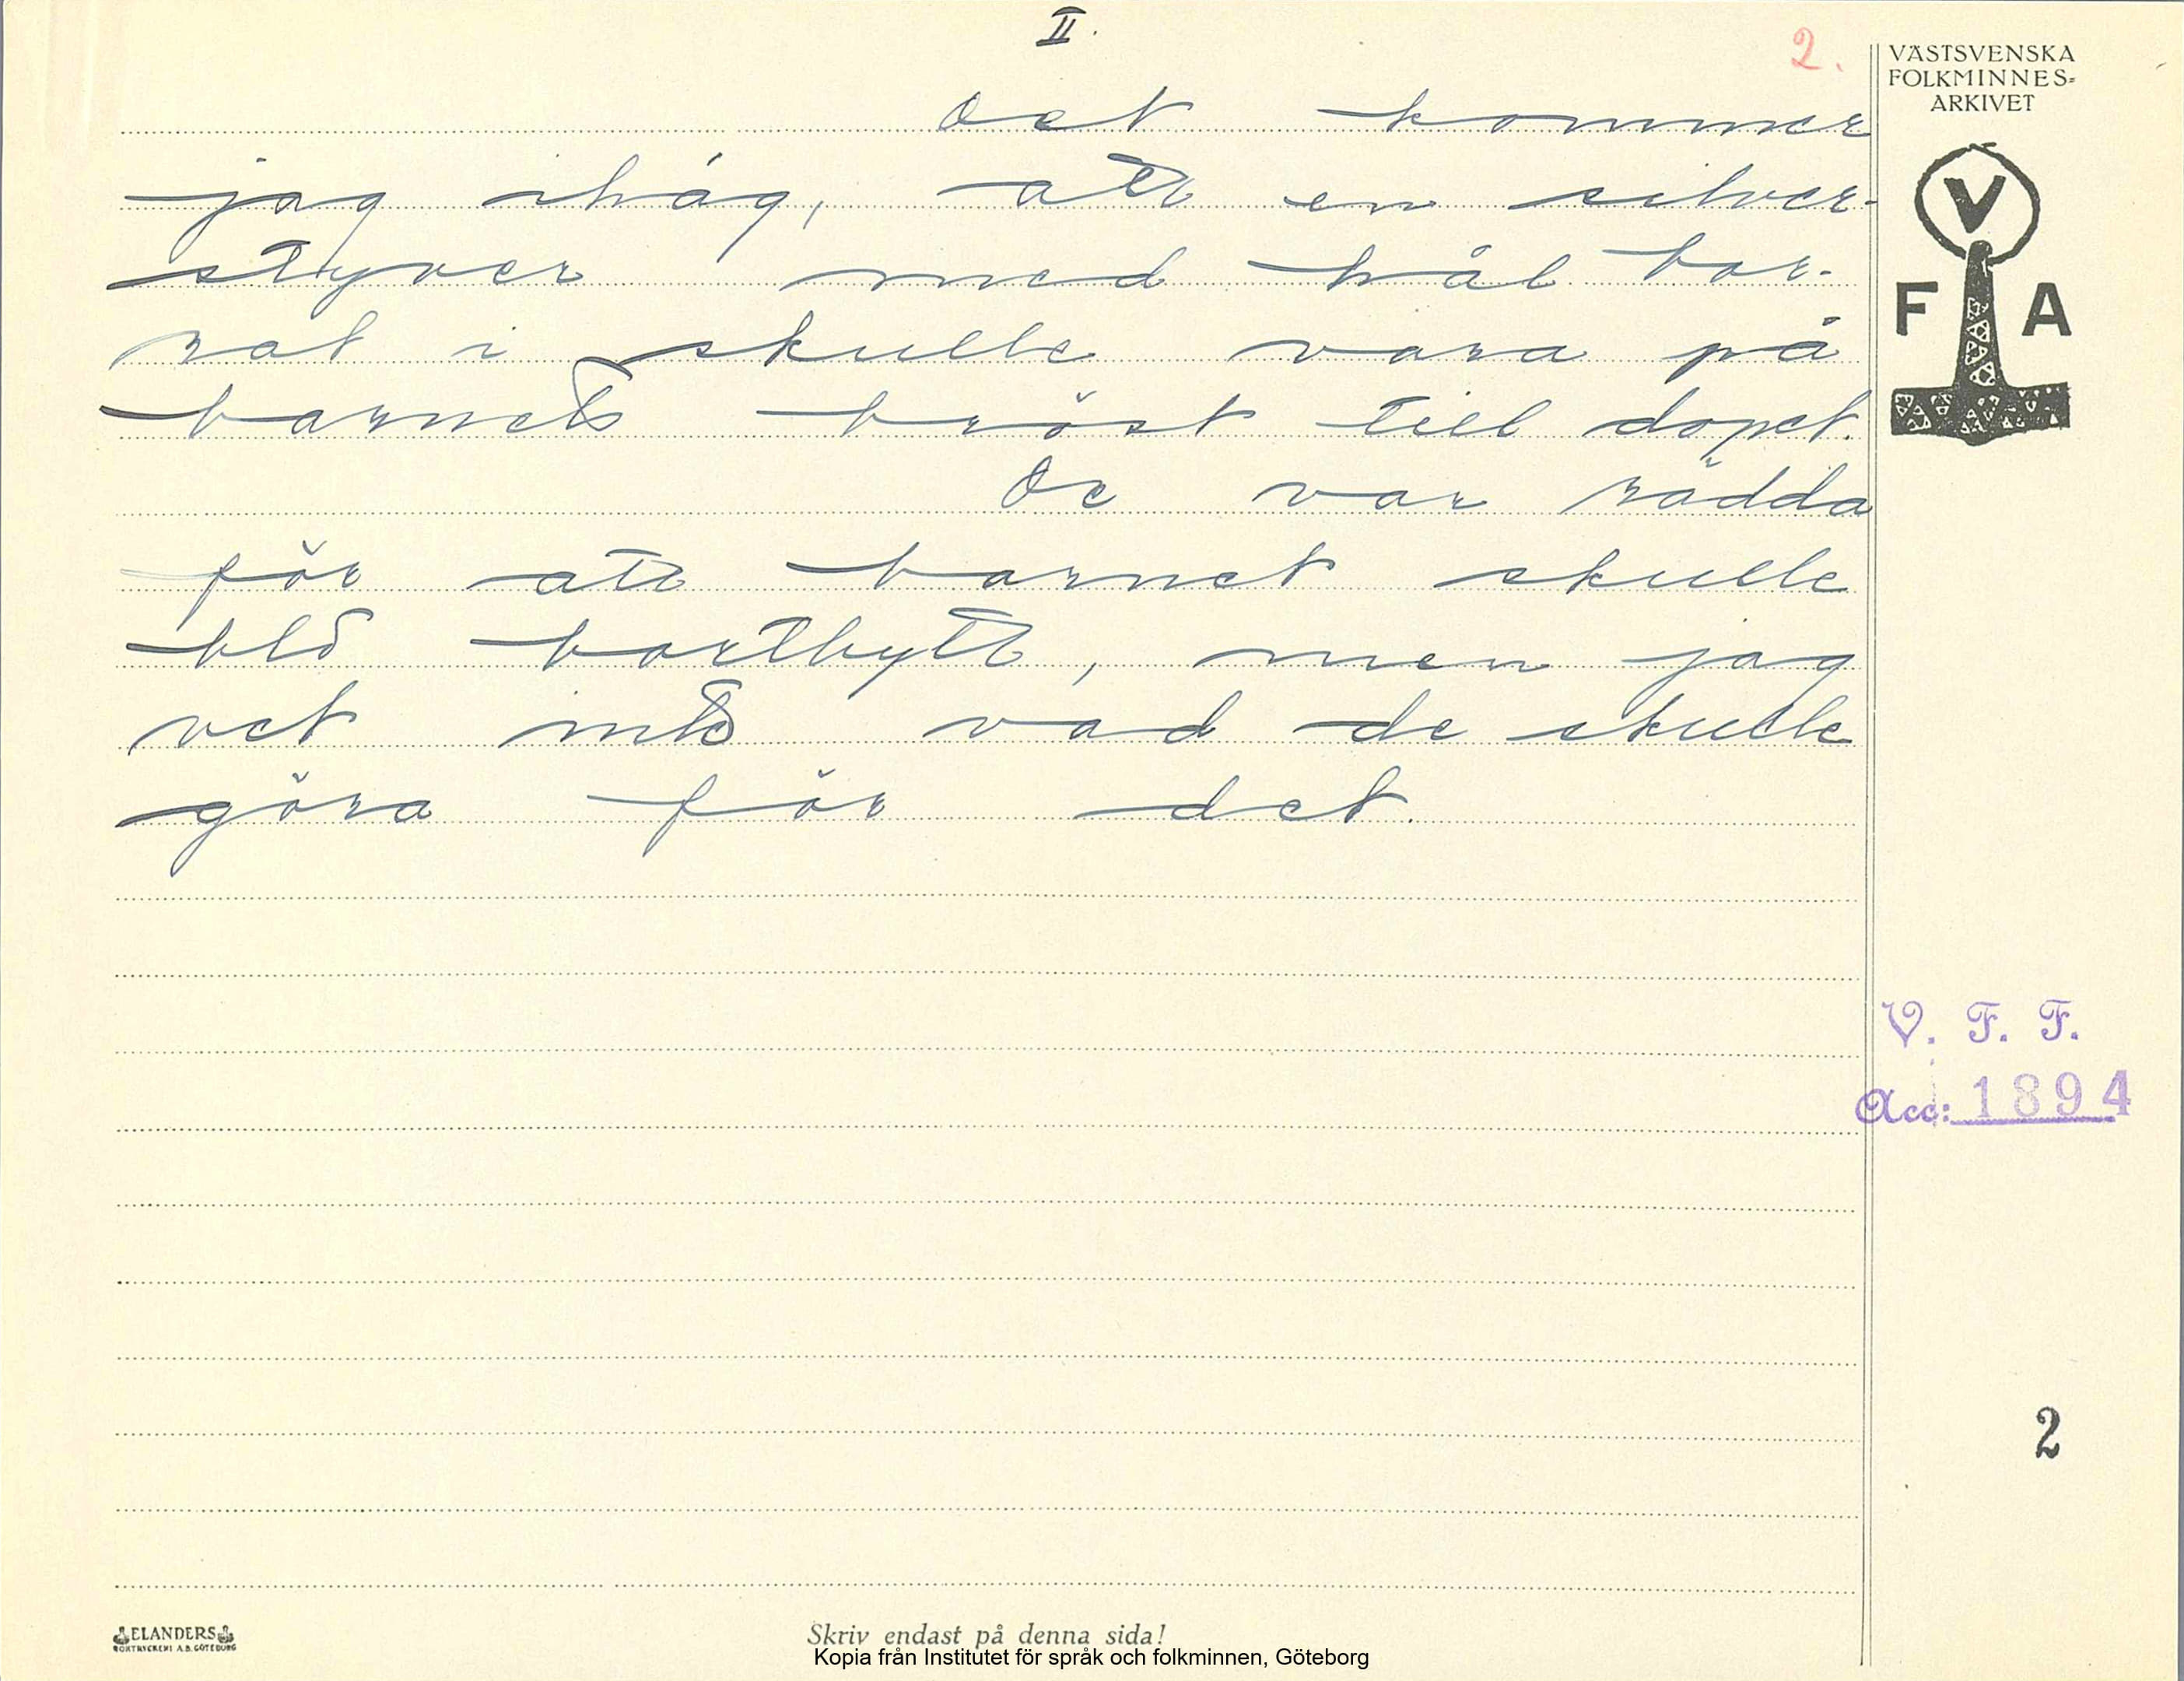 II.
2.
VÄSTSVENSKA
FOLKMINNES=
ARKIVET
V
F A
Det kommer
jag ihåg, att en silver-
styver med hål bor-
rat i skulle vara på
barnets bröst till dopet.
De var rädda
för att barnet skulle
bli bortbytt, men jag
vet inte vad de skulle
göra för det.
V. F. F.
Acc: 1894
2
ELANDERS
BOKTRYCKERI A.B. GÖTEBORG
Skriv endast på denna sida!
Kopia från Institutet för språk och folkminnen, Göteborg